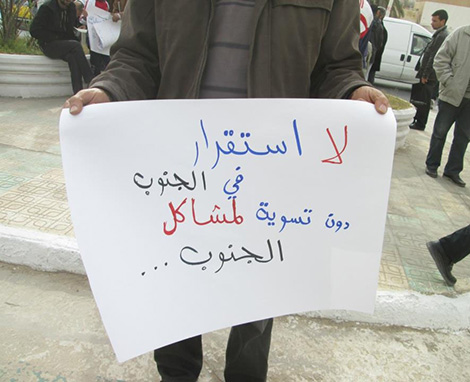 لا استقرار
في الجنوب
دون تسوية لمشاكل
الجنوب...